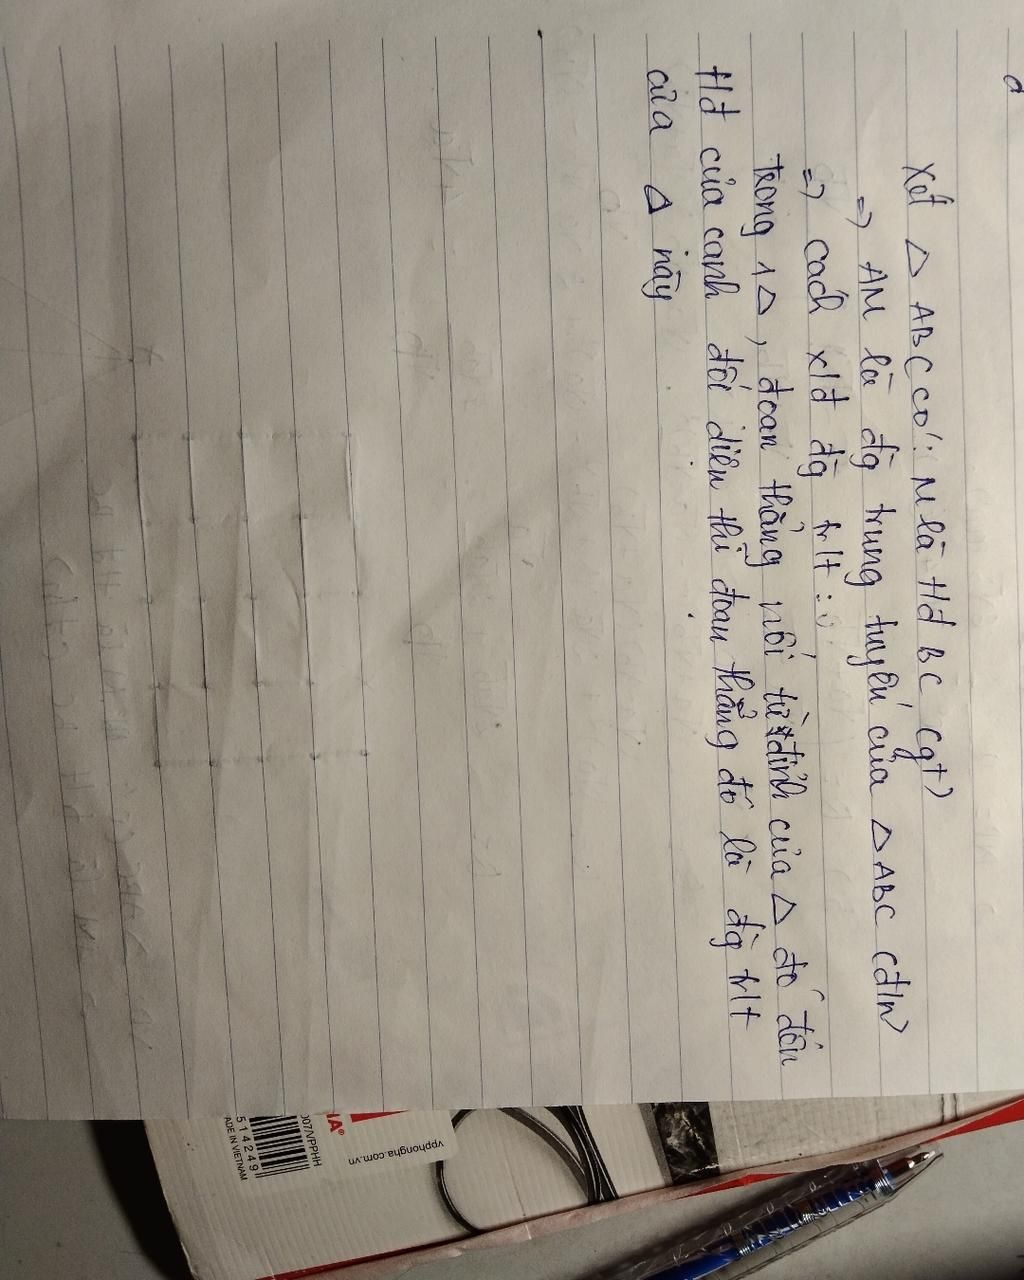 Xét △ ABC có: M là tđ BC (gt)
=> AM là đg trung tuyến của △ ABC (đ/n)
=> cách x/đ đg tr/t :
trong 1 △, đoạn thẳng nối từ đỉnh của △ đó đến
tđ của cạnh đối diện thì đoạn thẳng đó là đg tr/t
của △ này
vpphongha.com.vn
007/VPPHH
514249
ADE IN VIETNAM